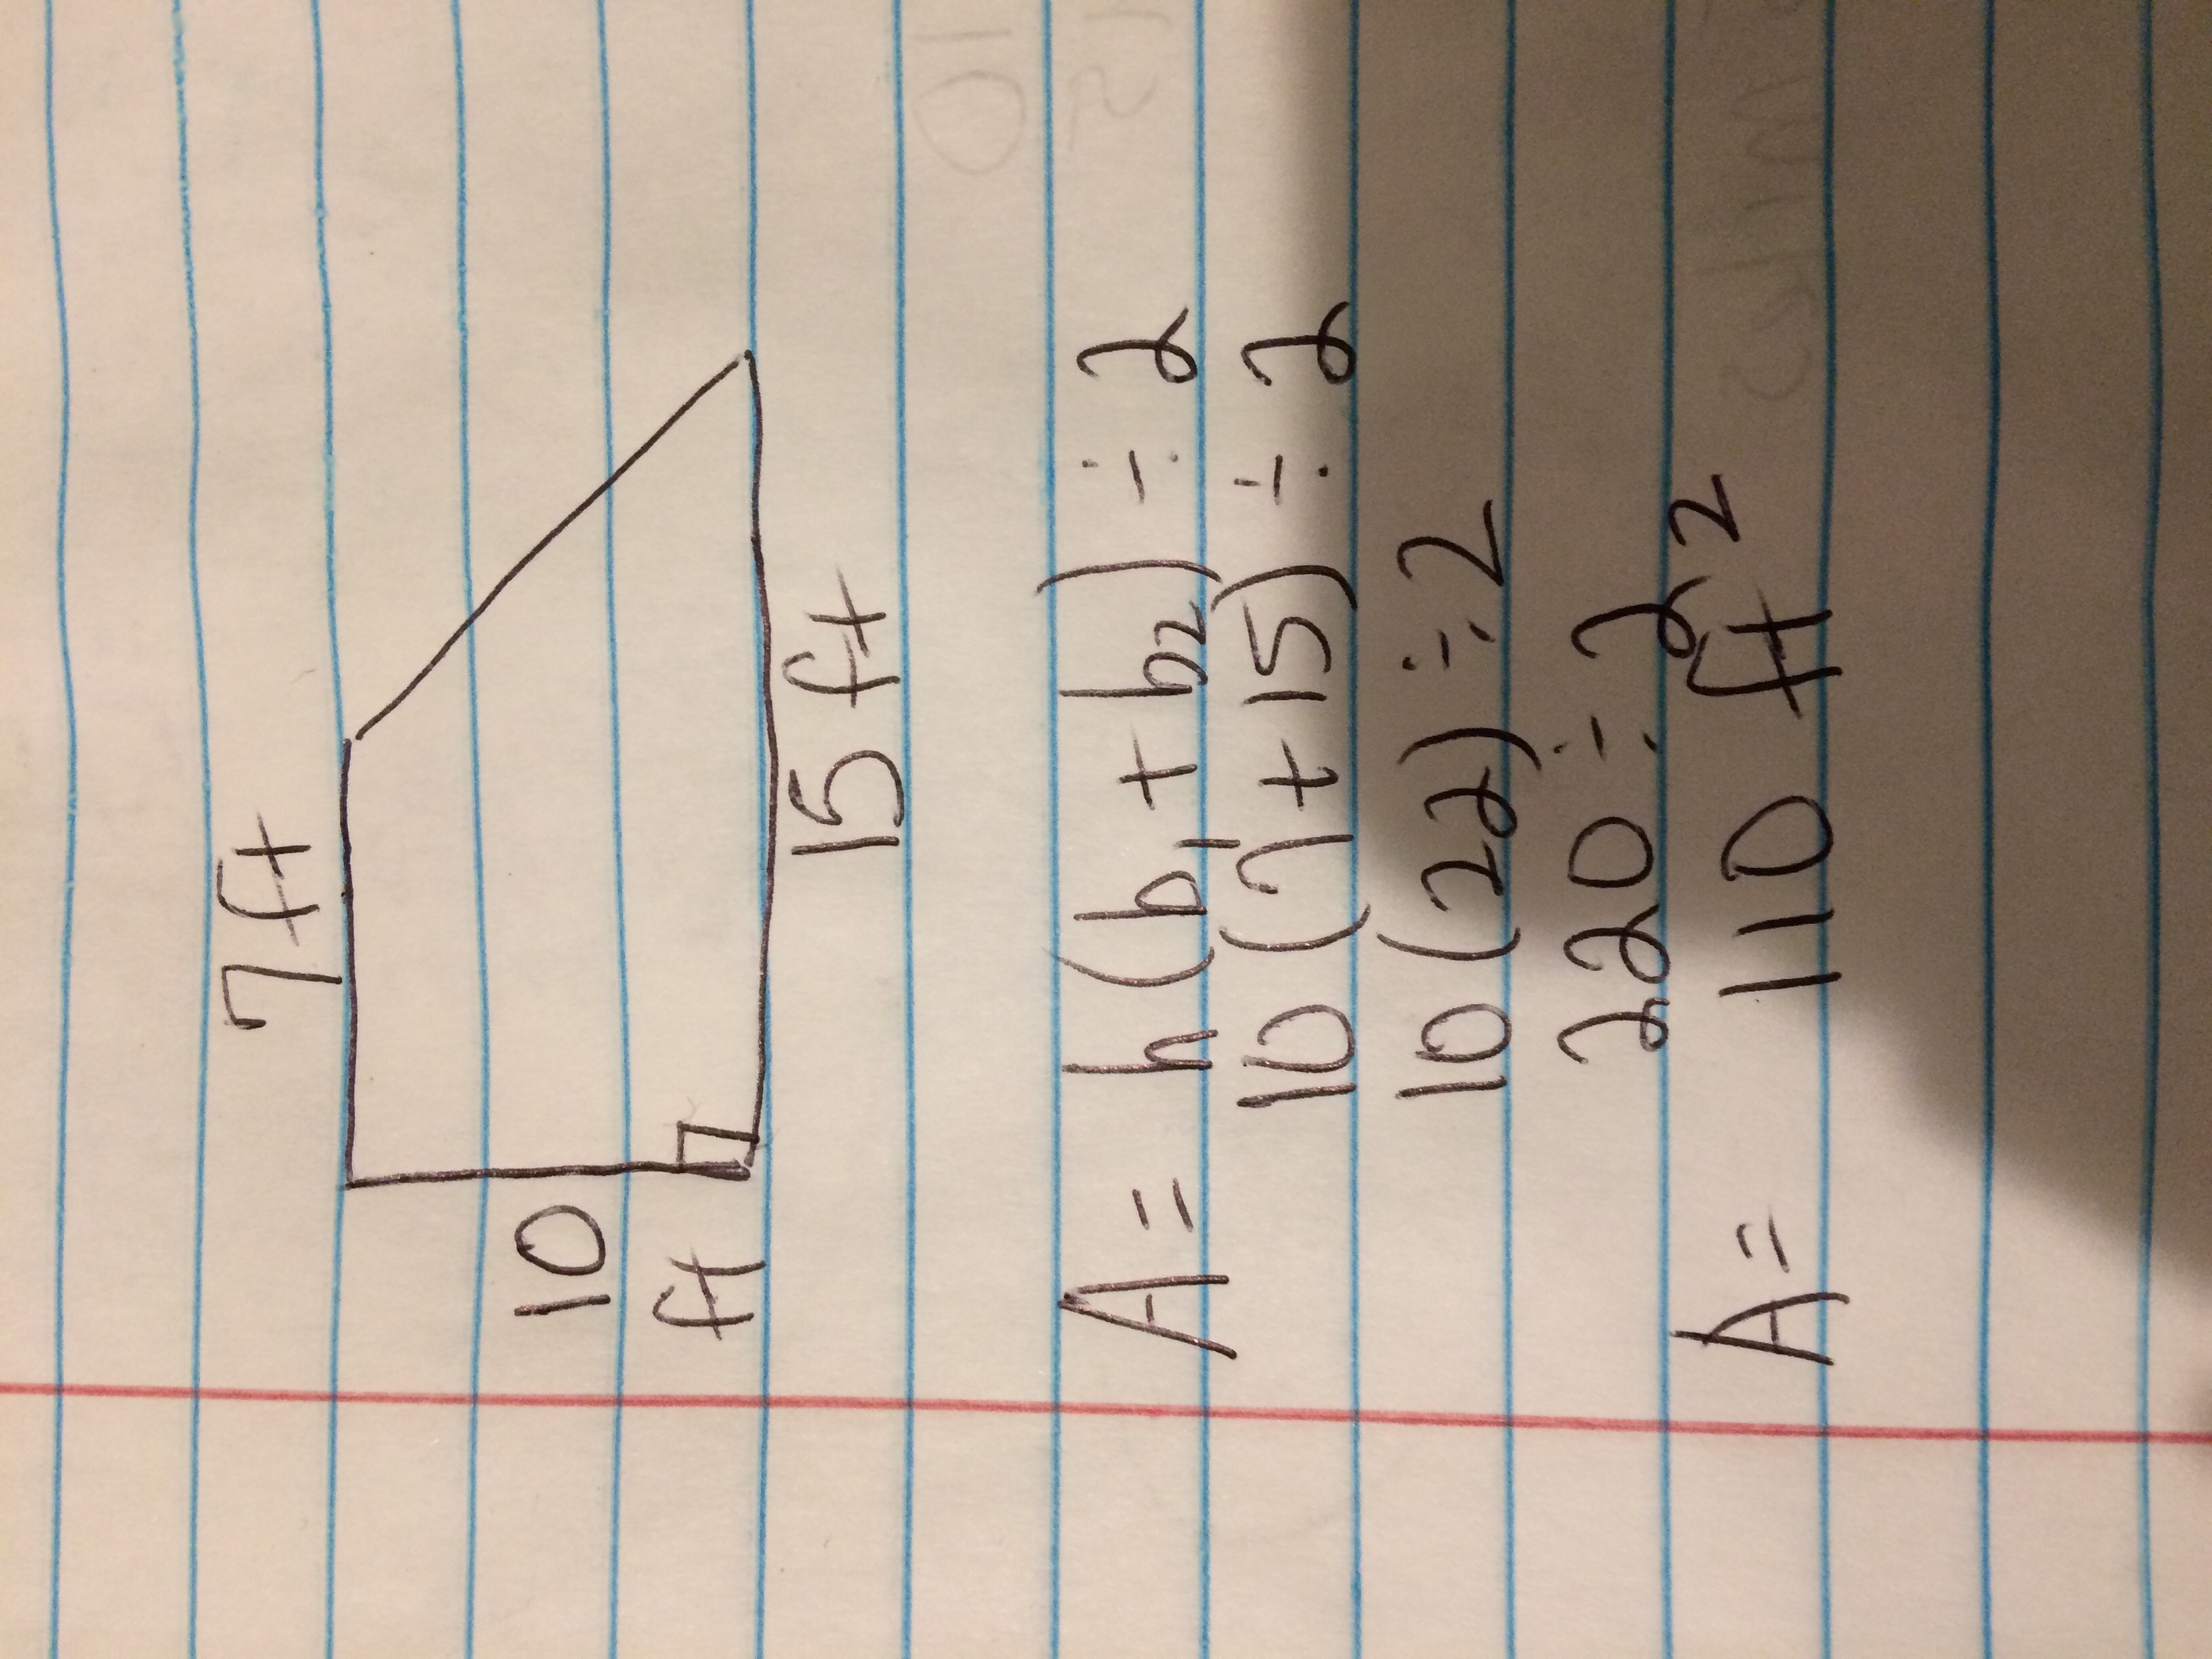 7 ft
10
ft
15 ft
A = h(b₁ + b₂) ÷ 2
10(7+15) ÷ 2
10(22) ÷ 2
220 ÷ 2
A = 110 ft²